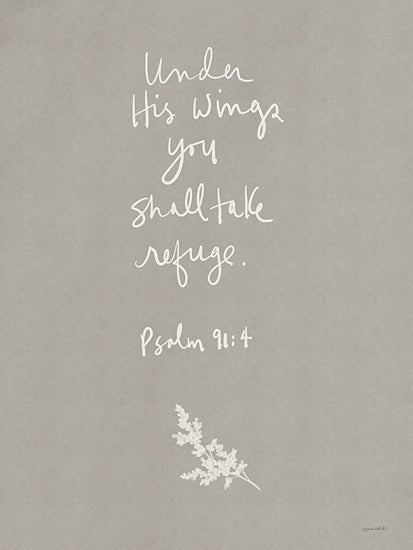 Under
His Wings
you
shall take
refuge.
Psalm 91:4